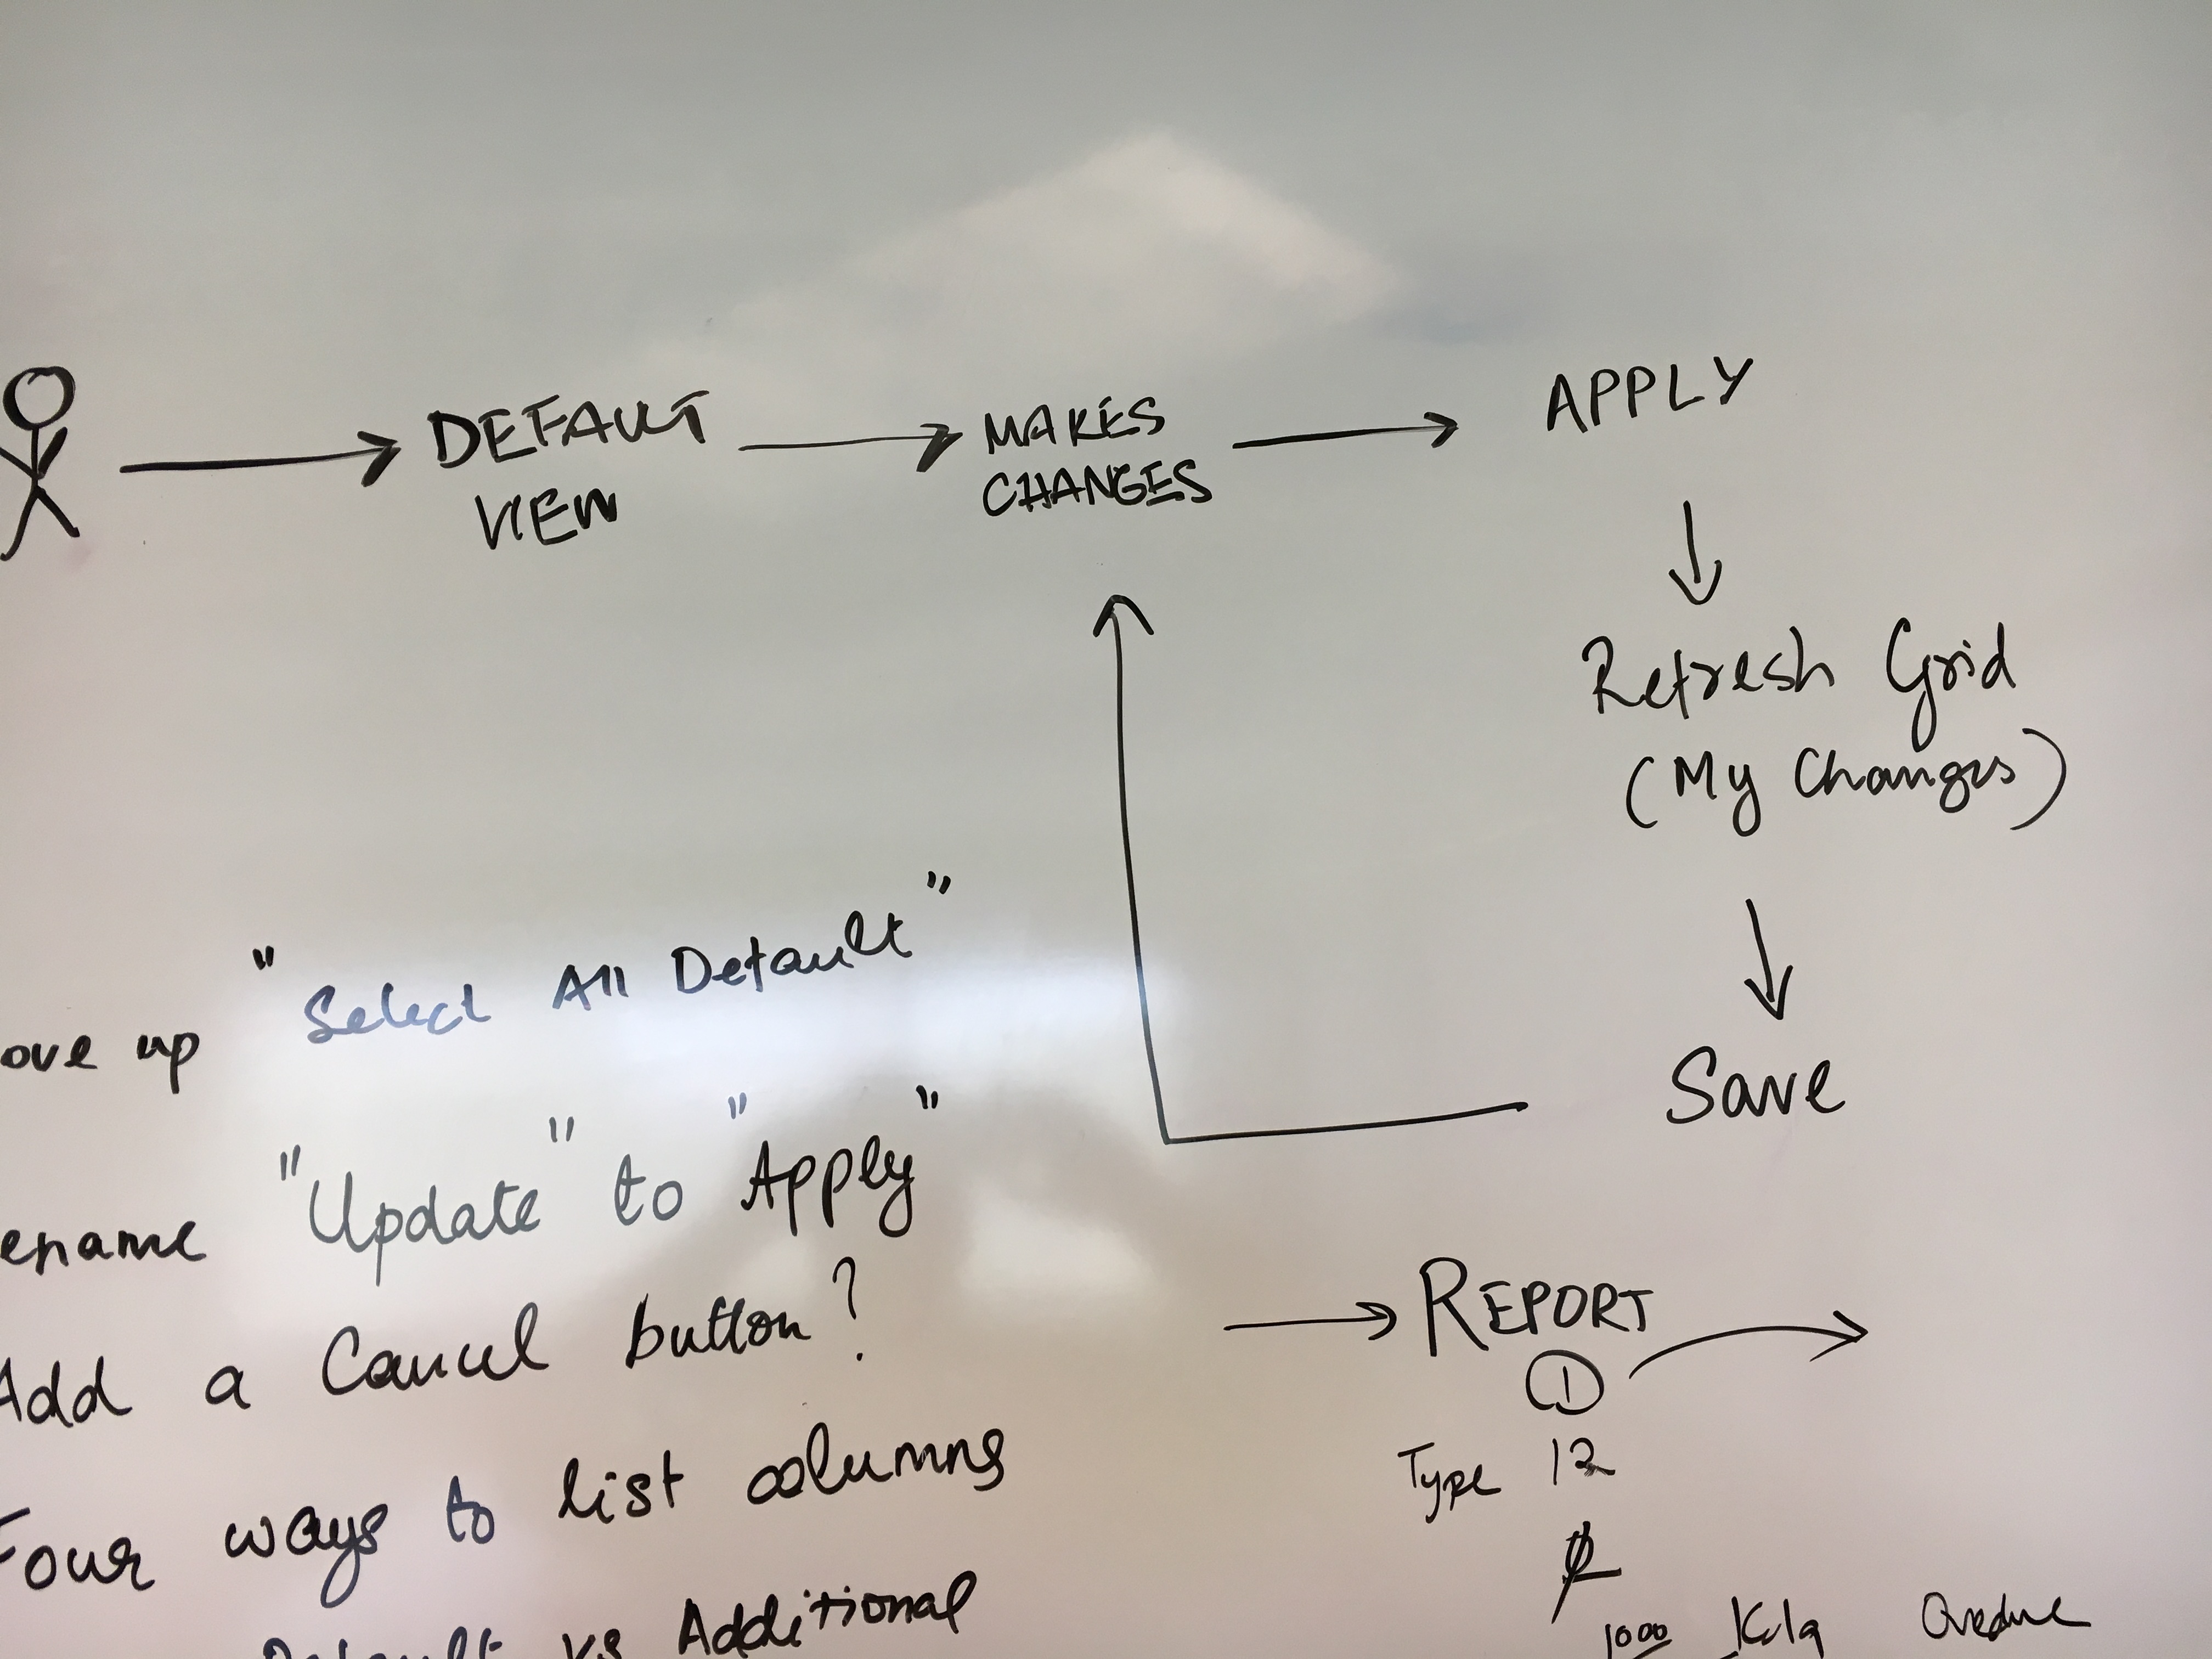 DEFAULT
VIEW
MAKES
CHANGES
APPLY
Refresh Grid
(My Changes)
Save
ove up "Select All Default"
ename "Update" to "Apply"
Add a Cancel button?
Four ways to list columns
Default vs Additional
REPORT
1
Type 12
1000 Overdue